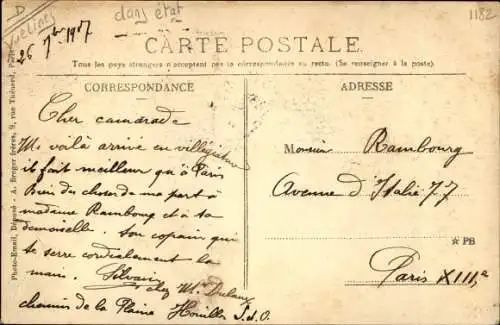 D
Yvelines
dans état
1182
26 7bre 1907
CARTE POSTALE
Tous les pays étrangers n'acceptent pas la correspondance au recto. (Se renseigner à la poste).
CORRESPONDANCE
ADRESSE
Cher camarade
Me voilà arrivé en villégiature
il fait meilleur qu'à Paris
Bien des choses de ma part à
madame Rambourg et à sa
demoiselle. Son copain qui
te serre cordialement la
main. Silvain
chez Mr
chemin de la Plaine Houilles S.et O.
Monsieur Rambourg
Avenue d'Italie 77
★ PB
Paris XIIIe
Photo-Email, Déposé - A. Breger frères, 9, rue Thénard,